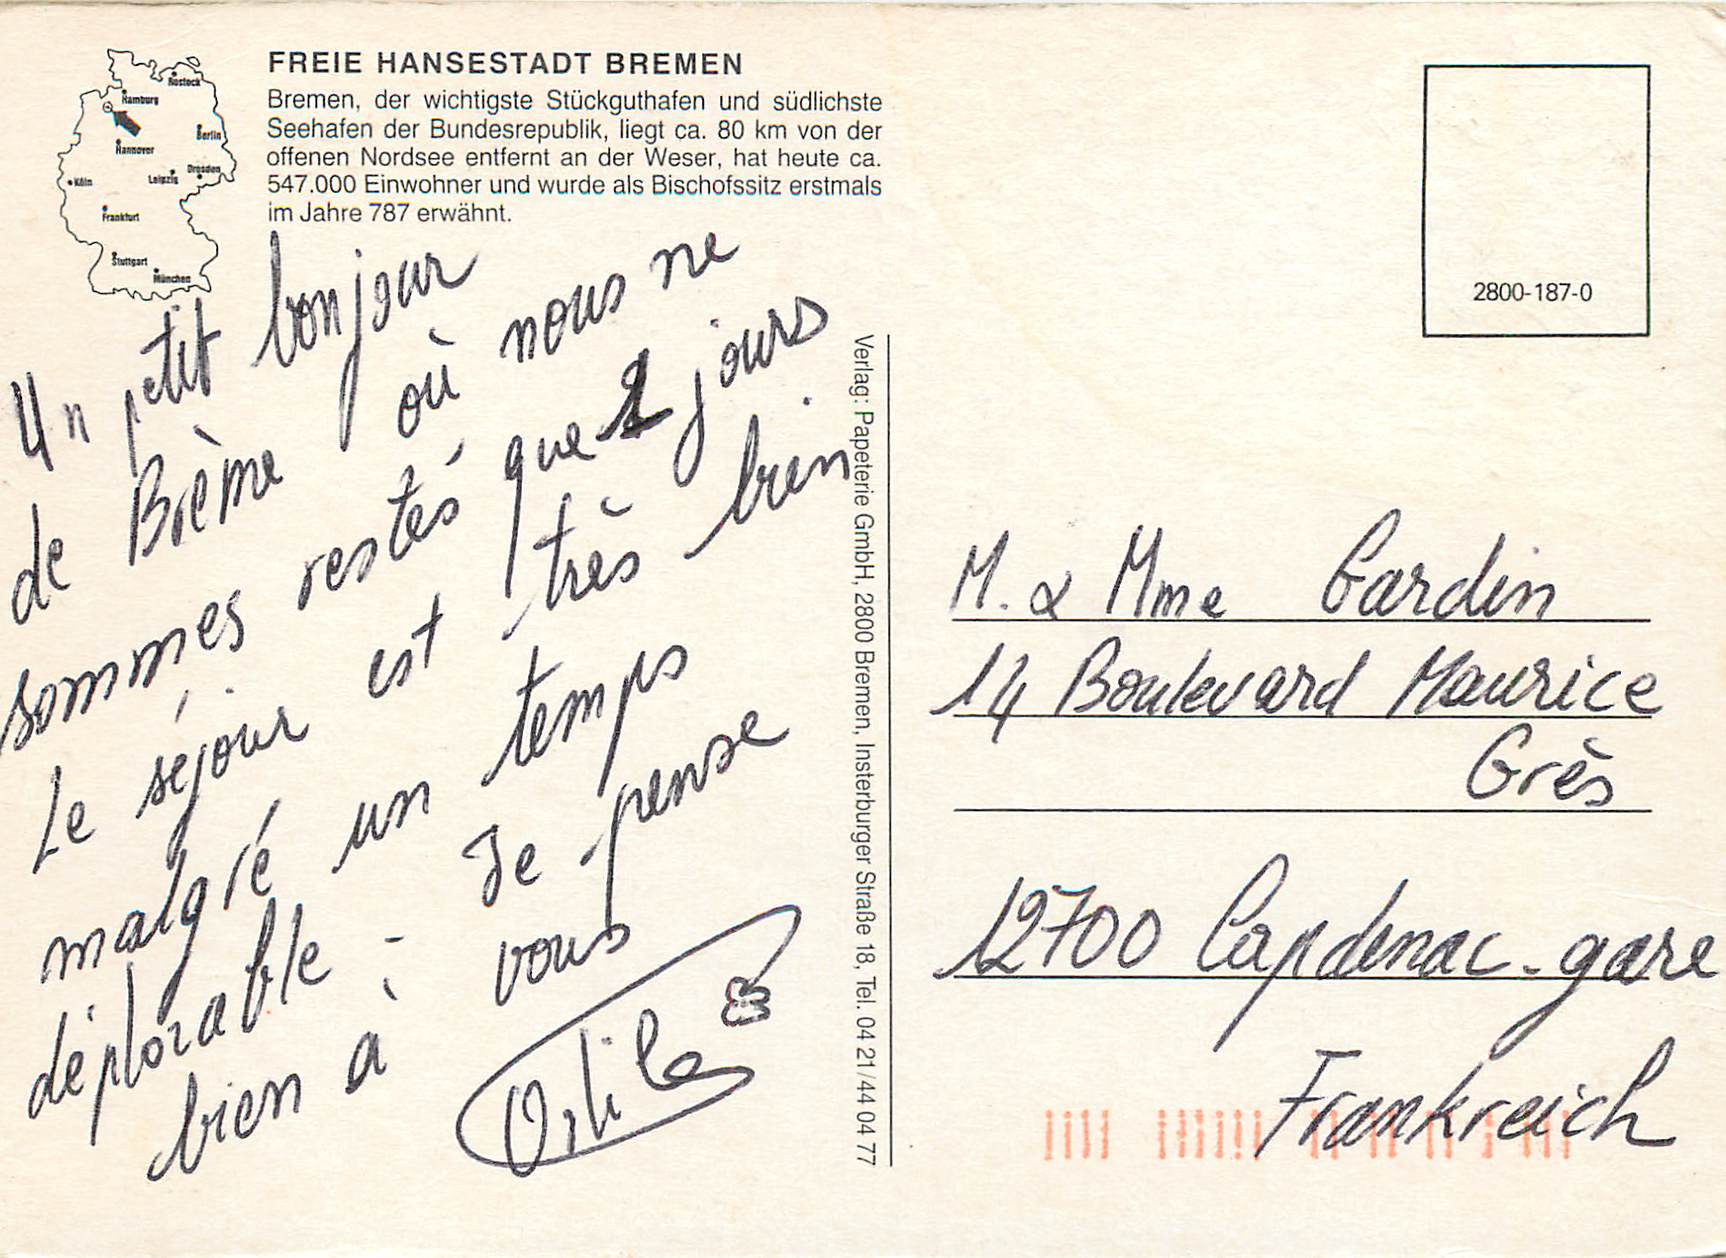 FREIE HANSESTADT BREMEN
Bremen, der wichtigste Stückguthafen und südlichste
Seehafen der Bundesrepublik, liegt ca. 80 km von der
offenen Nordsee entfernt an der Weser, hat heute ca.
547.000 Einwohner und wurde als Bischofssitz erstmals
im Jahre 787 erwähnt.
Rostock
Hamburg
Berlin
Hannover
Leipzig
Dresden
Köln
Frankfurt
Stuttgart
München
Un petit bonjour
de Brème où nous ne
sommes restés que 2 jours
Le séjour est très bien
malgré un temps
déplorable - Je pense
bien à vous
Verlag: Papeterie GmbH, 2800 Bremen, Insterburger Straße 18, Tel. 04 21/44 04 77
2800-187-0
M. & Mme Gardin
14 Boulevard Maurice
Grès
12700 Capdenac-gare
Frankreich